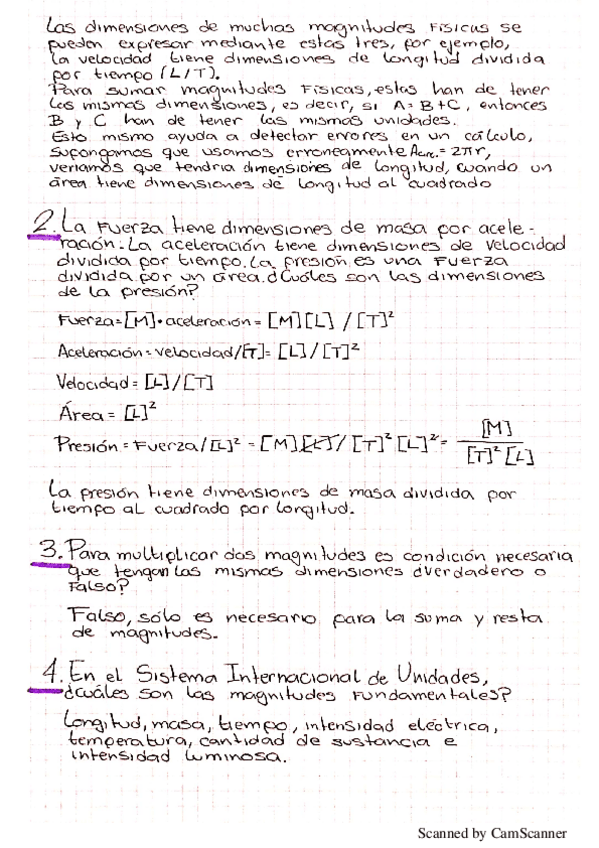 Las dimensiones de muchas magnitudes Físicas se
pueden expresar mediante estas tres, por ejemplo,
la velocidad tiene dimensiones de longitud dividida
por tiempo (L/T).
Para sumar magnitudes Físicas, estas han de tener
las mismas dimensiones, es decir, si A = B+C, entonces
B y C han de tener las mismas unidades.
Esto mismo ayuda a detectar errores en un cálculo,
supongamos que usamos erroneamente Acirc. = 2πr,
veriamos que tendria dimensiones de longitud, cuando un
área tiene dimensiones de longitud al cuadrado
2. La Fuerza tiene dimensiones de masa por acele-
ración. La aceleración tiene dimensiones de velocidad
dividida por tiempo. La presión es una Fuerza
dividida por un área. ¿Cuáles son las dimensiones
de la presión?
Fuerza = [M] · aceleración = [M][L] / [T]²
Aceleración = velocidad/[T] = [L]/[T]²
Velocidad = [L]/[T]
Área = [L]²
Presión = Fuerza/[L]² = [M][L]/[T]²[L]² = [M] / [T]²[L]
La presión tiene dimensiones de masa dividida por
tiempo al cuadrado por longitud.
3. Para multiplicar dos magnitudes es condición necesaria
que tengan las mismas dimensiones ¿verdadero o
Falso?
Falso, sólo es necesario para la suma y resta
de magnitudes.
4. En el Sistema Internacional de Unidades,
¿cuáles son las magnitudes Fundamentales?
Longitud, masa, tiempo, intensidad eléctrica,
temperatura, cantidad de sustancia e
intensidad luminosa.
Scanned by CamScanner